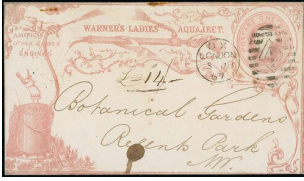 WARNER'S LADIES' AQUAJECT.
AMERICAN
GARDEN
ENGINES
LONDON
97
£-14-
Botanical Gardens
Regents Park
NW.